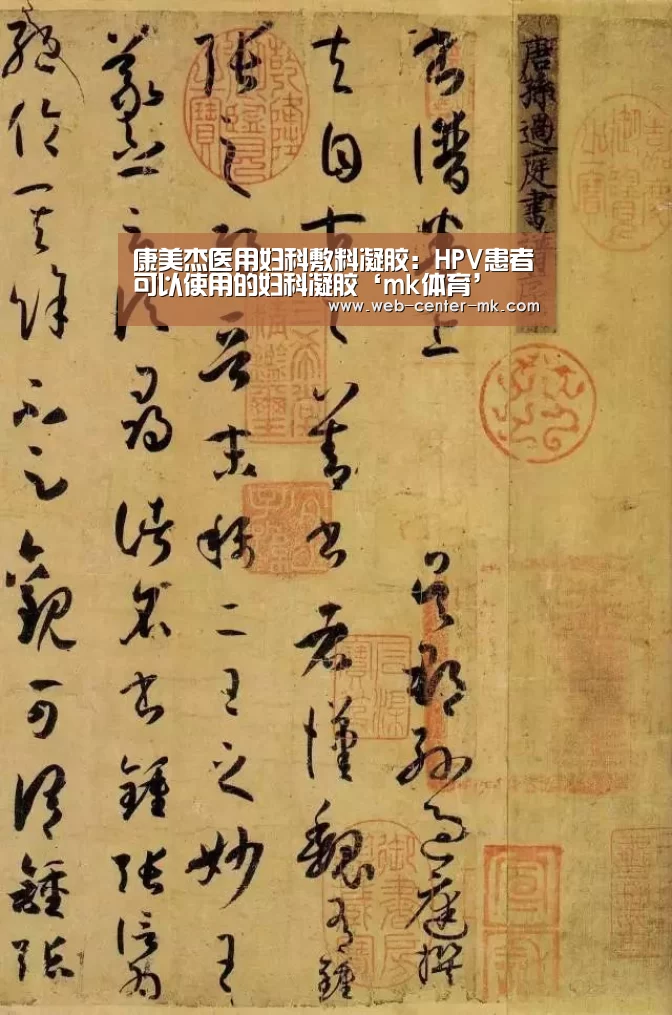 唐孫過庭書譜序
書譜卷上 吳郡孫過庭撰
夫自古之善書者漢魏有鍾
張之絕晉末稱二王之妙王
羲之云頃尋諸名書鍾張信為
絕倫其餘不足觀可謂鍾張
康美杰医用妇科敷料凝胶：HPV患者
可以使用的妇科凝胶‘mk体育’
www.web-center-mk.com
乾隆御覽之寶
三希堂精鑑璽
宜子孫